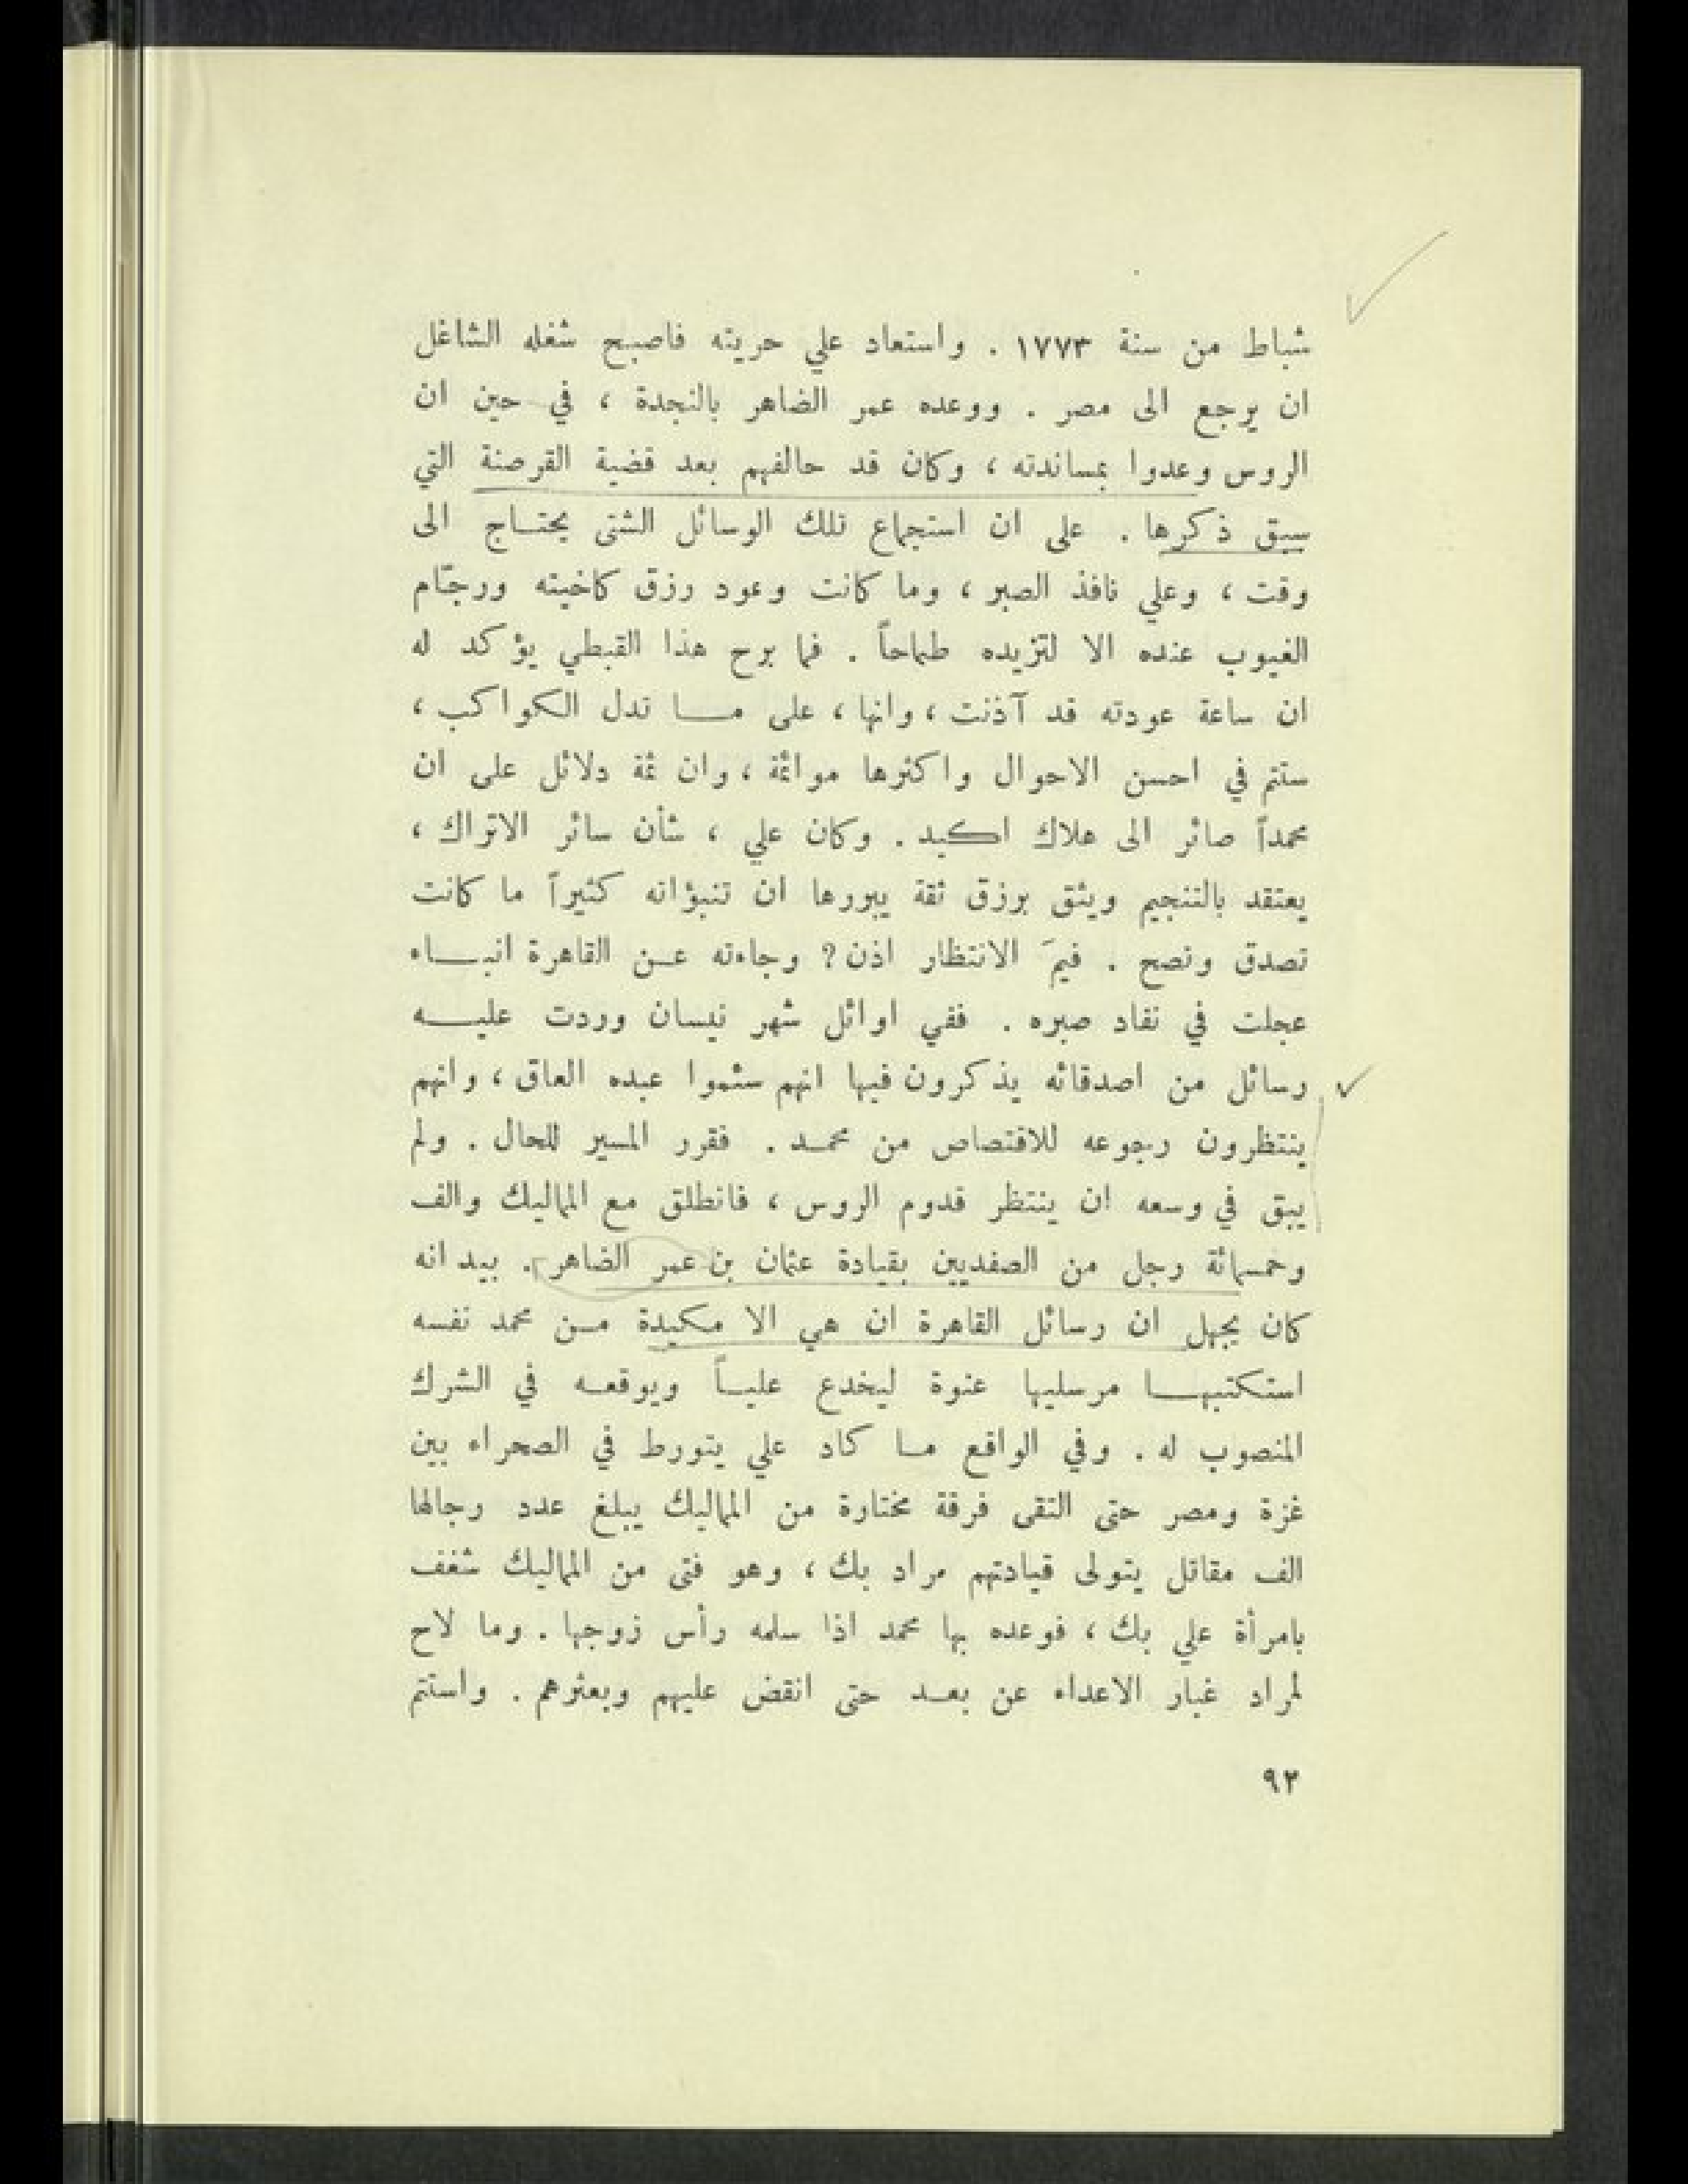 شباط من سنة ١٧٧٣ . واستعاد علي حريته فاصبح شغله الشاغل
ان يرجع الى مصر . ووعده عمر الضاهر بالنجدة ، في حين ان
الروس وعدوا بمساندته ، وكان قد حالفهم بعد قضية القرصنة التي
سبق ذكرها . على ان استجماع تلك الوسائل الشتى يحتــاج الى
وقت ، وعلي نافذ الصبر ، وما كانت وعود رزق كاخيته ورجّام
الغيوب عنده الا لتزيده طماحاً . فما برح هذا القبطي يؤكد له
ان ساعة عودته قد آذنت ، وانها ، على مــا تدل الكواكب ،
ستتم في احسن الاحوال واكثرها مواتمة ، وان ثمة دلائل على ان
محمداً صائر الى هلاك اكيد . وكان علي ، شأن سائر الاتراك ،
يعتقد بالتنجيم ويثق برزق ثقة يبررها ان تنبؤاته كثيراً ما كانت
تصدق وتصح . فيمَ الانتظار اذن ? وجاءته عـن القاهرة انبــاء
عجلت في نفاد صبره . ففي اوائل شهر نيسان وردت عليــه
رسائل من اصدقائه يذكرون فيها انهم سئموا عبده العاق ، وانهم
ينتظرون رجوعه للاقتصاص من محمـد . فقرر المسير للحال . ولم
يبق في وسعه ان ينتظر قدوم الروس ، فانطلق مع المماليك والف
وخمسمائة رجل من الصفديين بقيادة عثمان بن عمر الضاهر . بيد انه
كان يجهل ان رسائل القاهرة ان هي الا مكيدة مـن محمد نفسه
استكتبهــا مرسليها عنوة ليخدع عليــاً ويوقعـه في الشرك
المنصوب له . وفي الواقع مـا كاد علي يتورط في الصحراء بين
غزة ومصر حتى التقى فرقة مختارة من المماليك يبلغ عدد رجالها
الف مقاتل يتولى قيادتهم مراد بك ، وهو فتى من المماليك شغف
بامرأة علي بك ، فوعده بها محمد اذا سلمه رأس زوجها . وما لاح
لمراد غبار الاعداء عن بعـد حتى انقض عليهم وبعثرهم . واستتم
٩٢